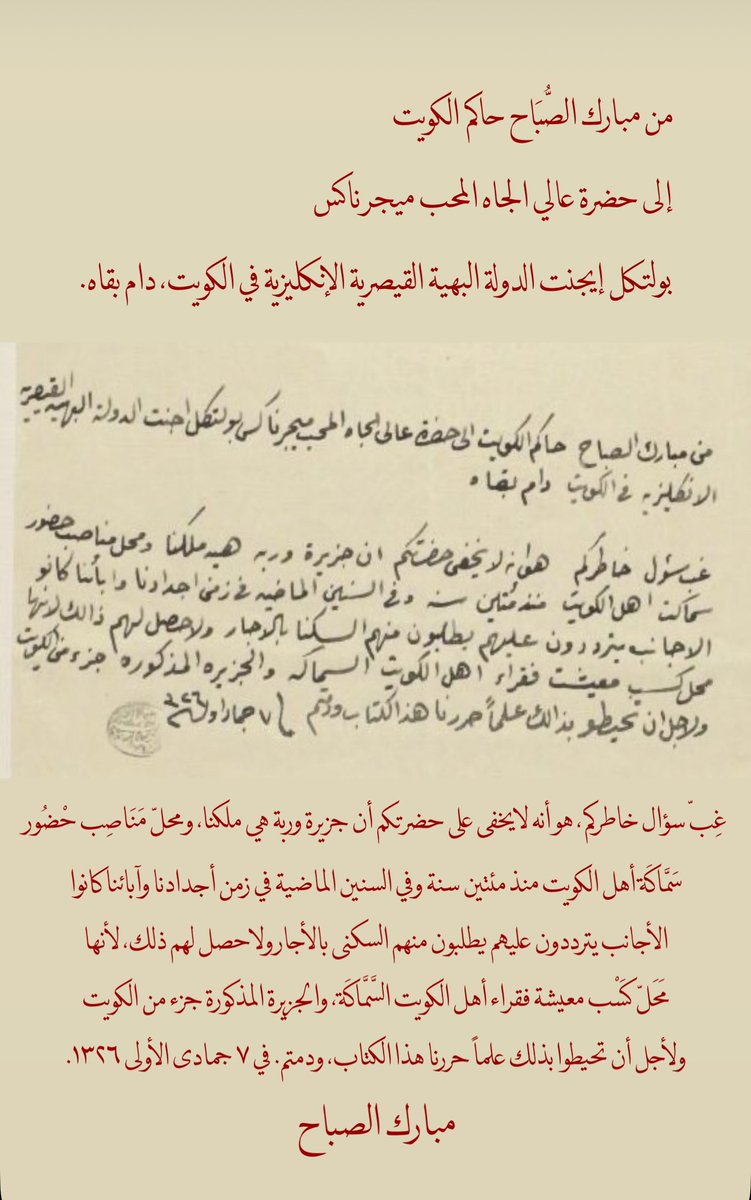 من مبارك الصُّبَاح حاكم الكويت
إلى حضرة عالي الجاه المحب ميجر ناكس
بولتكل إيجنت الدولة البهية القيصرية الإنكليزية في الكويت، دام بقاه.
من مبارك الصباح حاكم الكويت الى حضرة عالي الجاه المحب ميجر ناكس بولتكل اجنت الدولة البهيه القيصريه
الانكليزيه في الكويت دام بقاه
غب سؤل خاطركم هو انه لا يخفى حضرتكم ان جزيرة وربه هيه ملكنا ومحل مناصب حضور
سماكت اهل الكويت منذ مئتين سنه وفي السنين الماضيه في زمن اجدادنا وابأنا كانو
الاجانب يترددون عليهم يطلبون منهم السكنا بالاجار ولا حصل لهم ذالك لانها
محل كسب معيشت فقراء اهل الكويت السماكه والجزيره المذكوره جزء من الكويت
ولاجل ان تحيطو بذالك علماً حررنا هذا الكتاب ودمتم ٧ جماد اول ٣٢٦
غِبّ سؤال خاطركم، هو أنه لا يخفى على حضرتكم أن جزيرة وربة هي ملكنا، ومحلّ مَنَاصِب حْضُور
سَمَّاكَة أهل الكويت منذ مئتين سنة وفي السنين الماضية في زمن أجدادنا وآبائنا كانوا
الأجانب يترددون عليهم يطلبون منهم السكنى بالأجار ولا حصل لهم ذلك، لأنها
مَحَلّ كَسْب معيشة فقراء أهل الكويت السَّمَّاكَة، والجزيرة المذكورة جزء من الكويت
ولأجل أن تحيطوا بذلك علماً حررنا هذا الكتاب، ودمتم. في ٧ جمادى الأولى ١٣٢٦.
مبارك الصباح